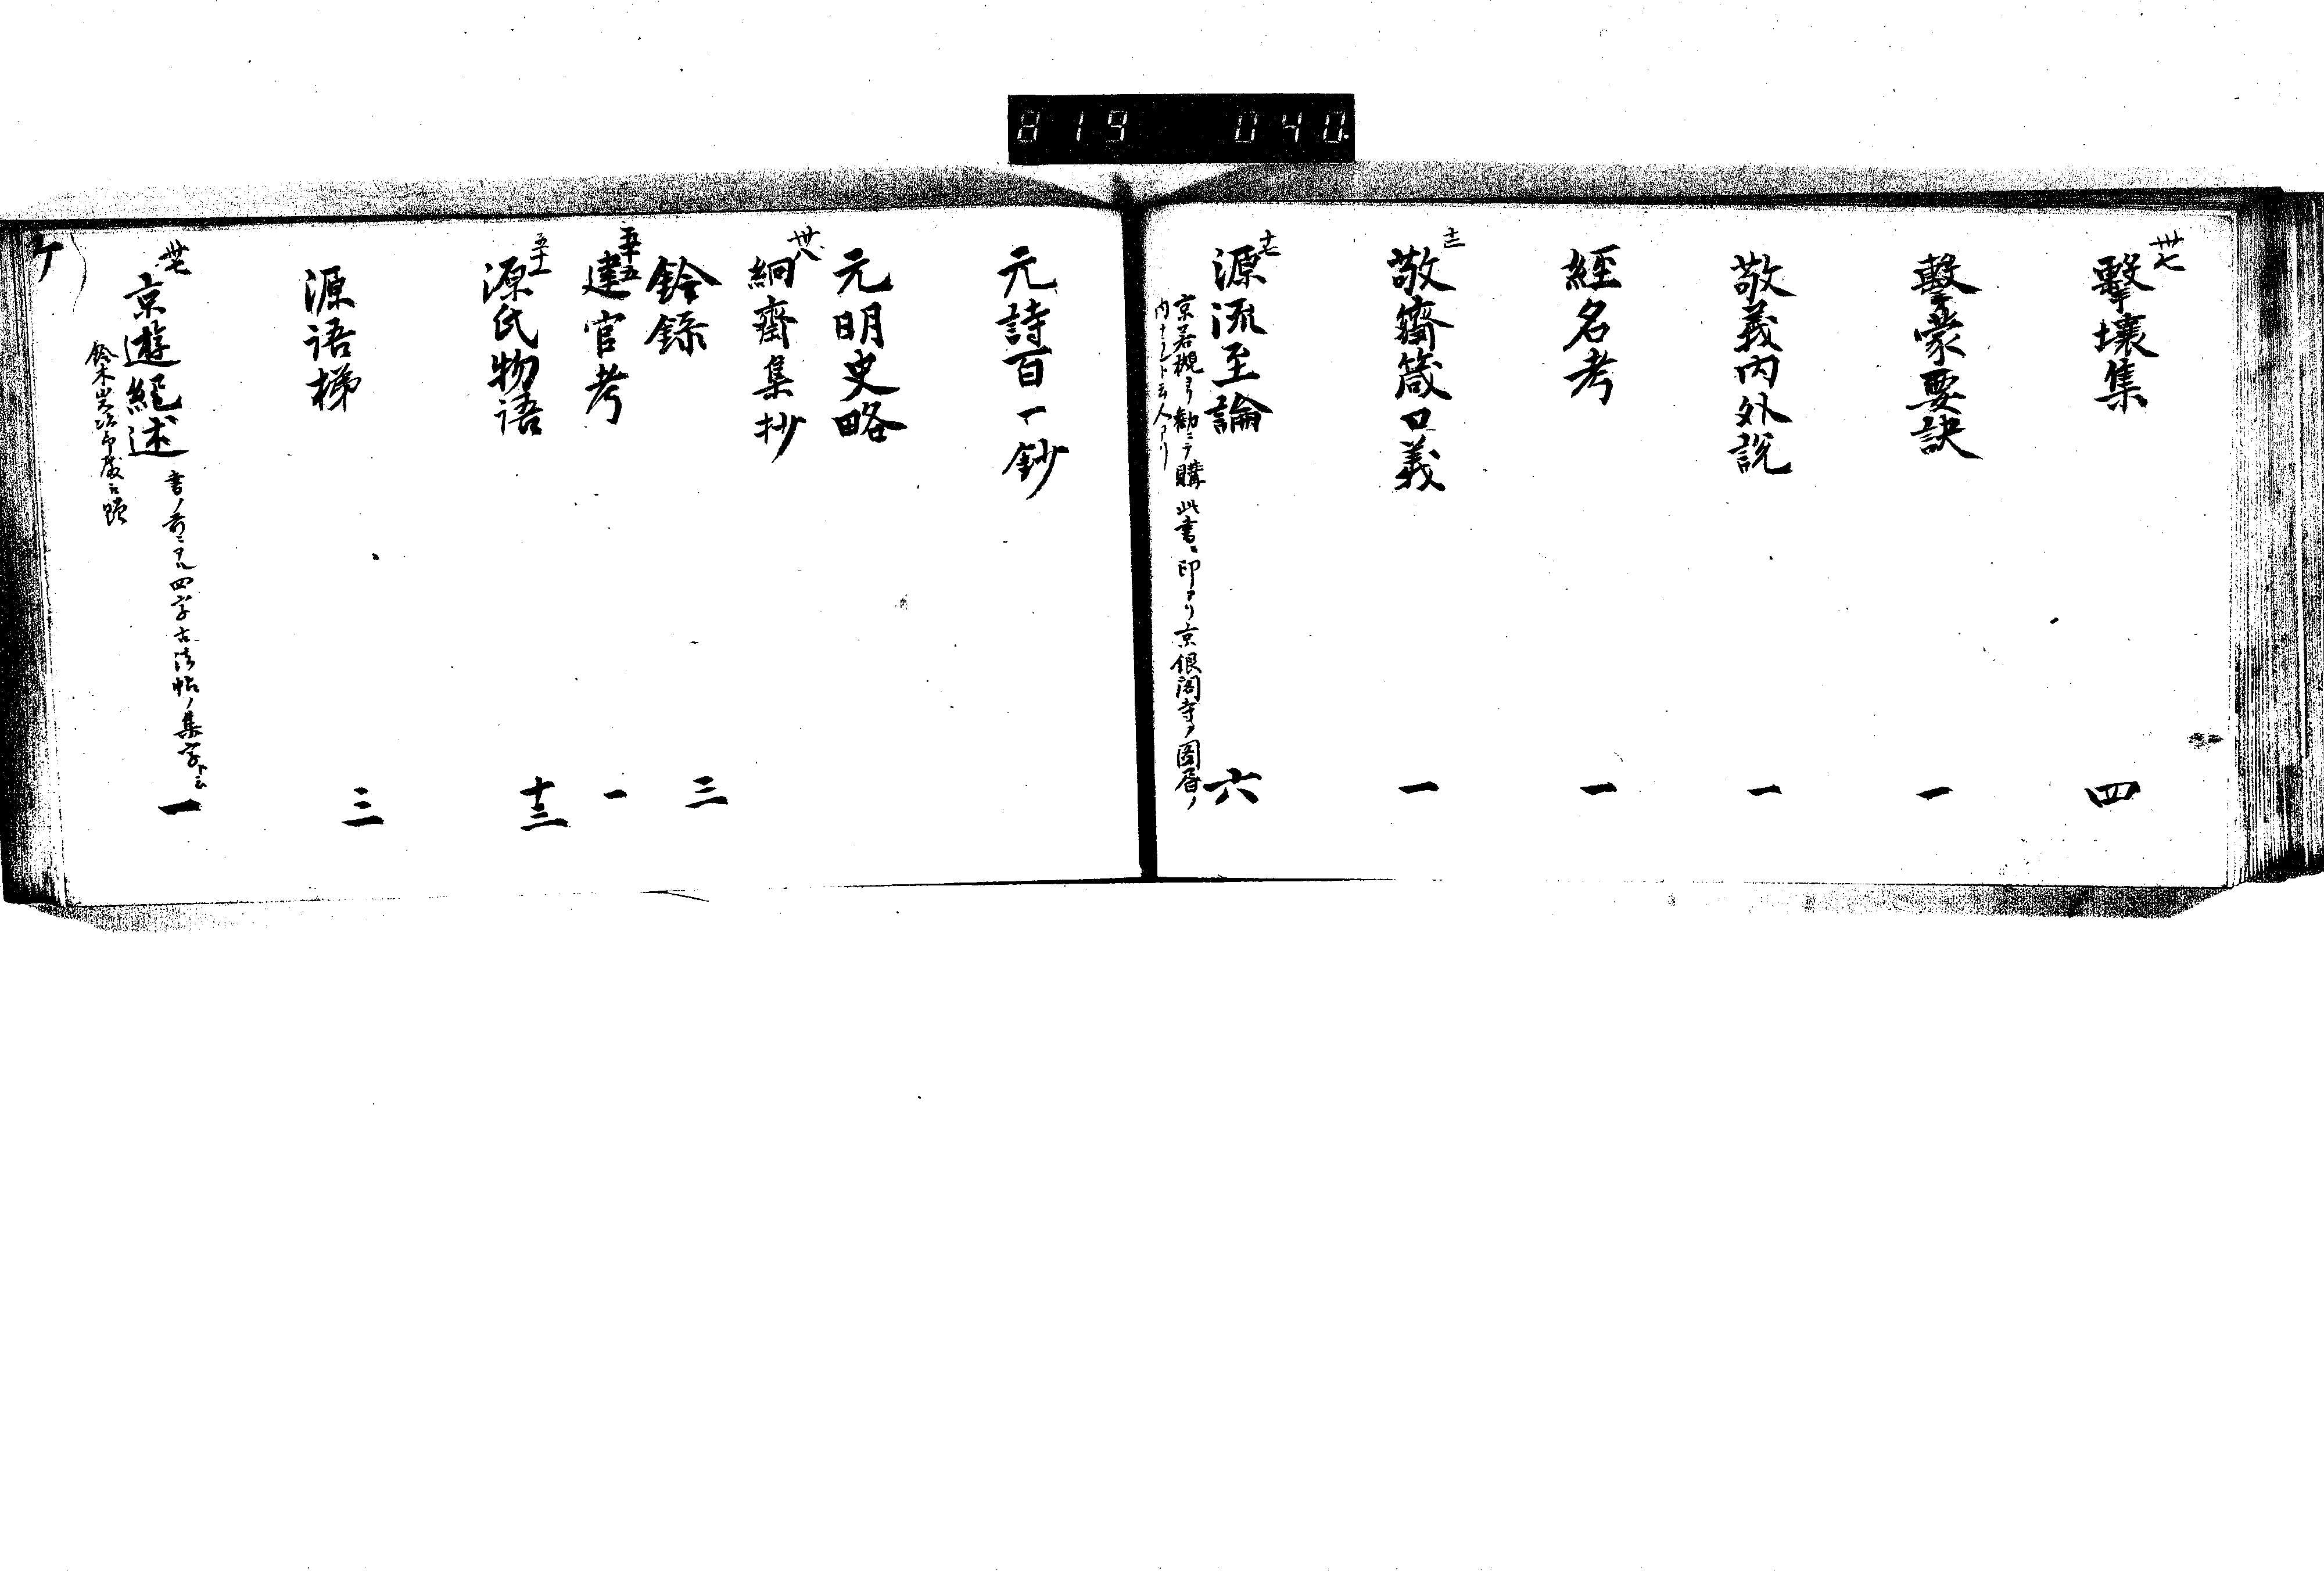 819 040
卅七
擊壤集 四
擊蒙要訣 一
敬義内外説 一
經名考 一
十三
敬齋箴口義 一
十七
源流至論 六
京若槻ヨリ勧ニテ購 此書ニ印アリ京銀閣寺ノ
内十
ト云人アリ
元詩百一鈔
元明史略
卅八
絅齋集抄
鈐録 三
五十五
建官考 一
五十一
源氏物語 十三
源語梯 三
卅七
京遊紀述 一
書ノ首ニアル四字古法帖ノ集字ト云
鈴木
ケ